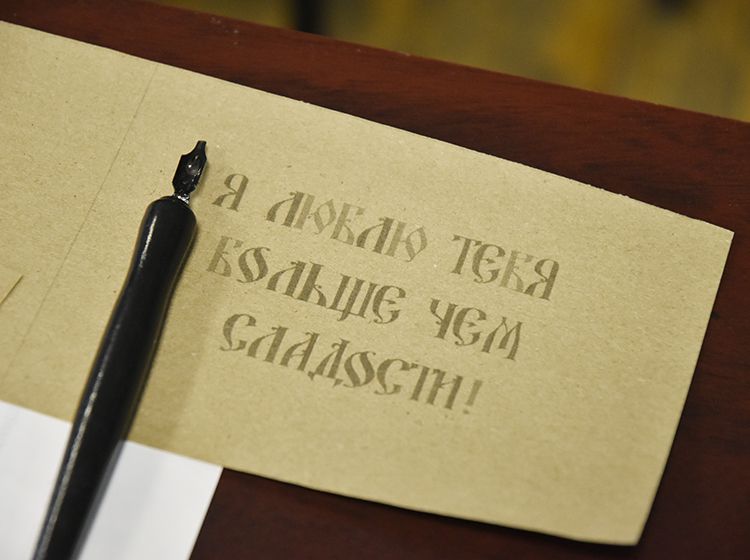 Я ЛЮБЛЮ ТЕБЯ
БОЛЬШЕ ЧЕМ
СЛАДОСТИ!